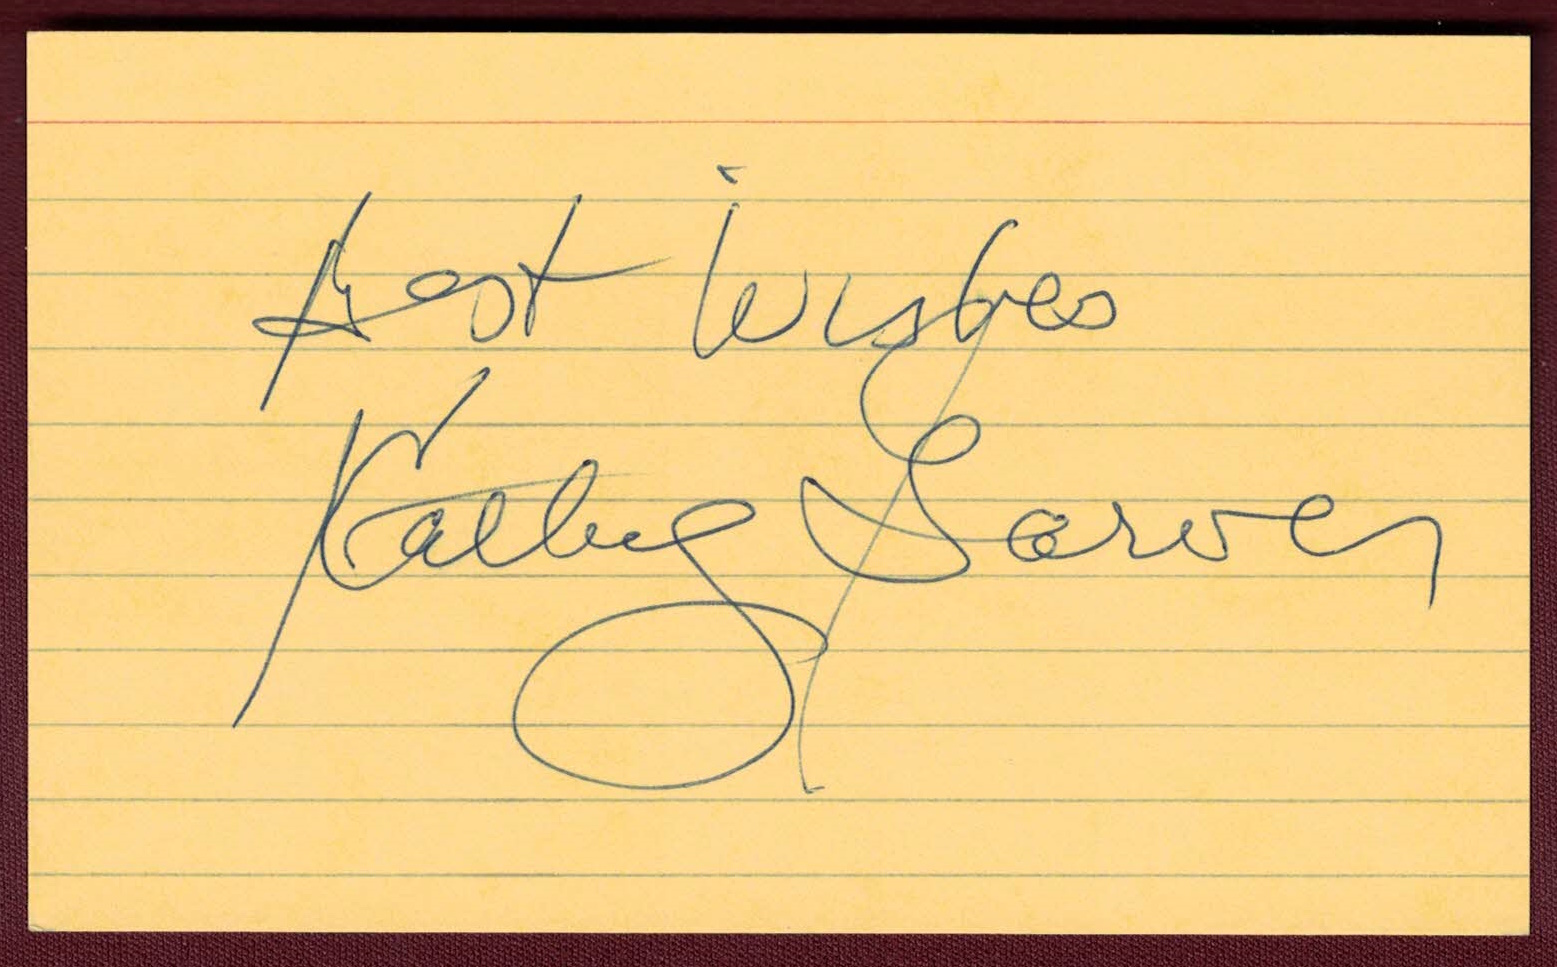 Best Wishes
Kathy Garver